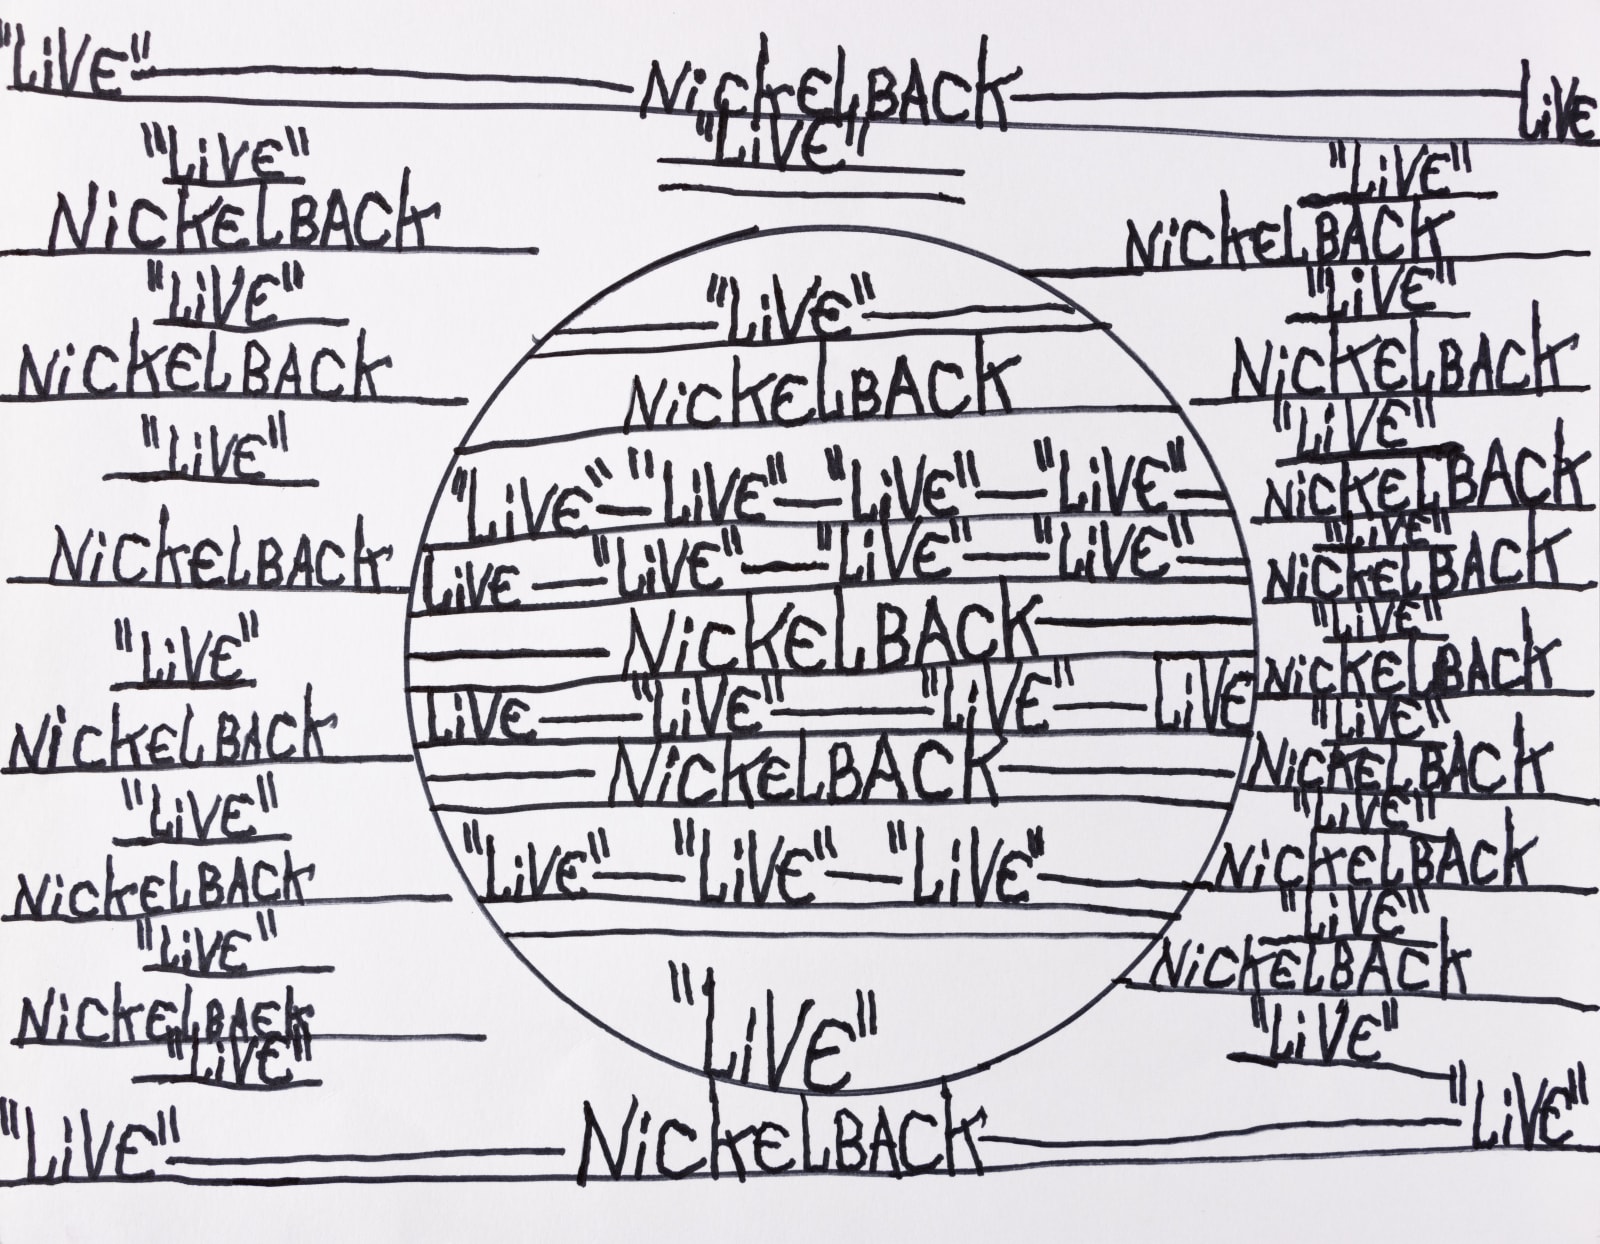 "LiVE" — NiCKELBACK — LiVE
"LiVE"
"LiVE"
NiCKELBACK
"LiVE"
NiCKELBACK
"LiVE"
NiCKELBACK
"LiVE"
NiCKELBACK
"LiVE"
NiCKELBACK
"LiVE"
NiCKELBACK
"LiVE"
"LiVE"
NiCKELBACK
"LiVE" — "LiVE" — "LiVE" — "LiVE" —
LiVE — "LiVE" — "LiVE" — "LiVE" —
NiCKELBACK
LiVE — "LiVE" — "LiVE" — LiVE
NiCKELBACK
"LiVE" — "LiVE" — "LiVE" —
"LiVE"
"LiVE"
NiCKELBACK
"LiVE"
NiCKELBACK
"LiVE"
NiCKELBACK
"LiVE"
NiCKELBACK
"LiVE"
NiCKELBACK
"LiVE"
NiCKELBACK
"LiVE"
NiCKELBACK
"LiVE"
NiCKELBACK
"LiVE"
"LiVE" — NiCKELBACK — "LiVE"